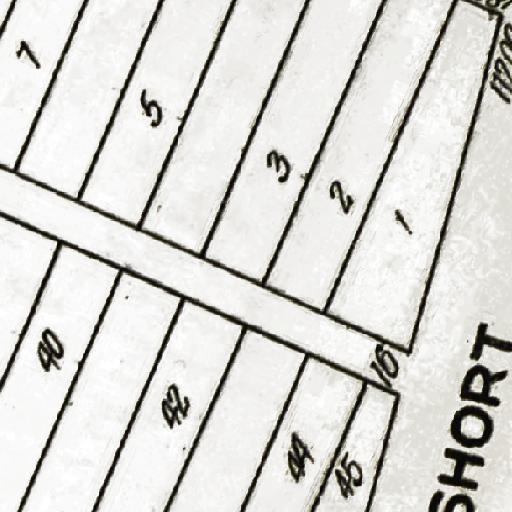 7
5
3
2
1
16
40
42
44
45
SHORT